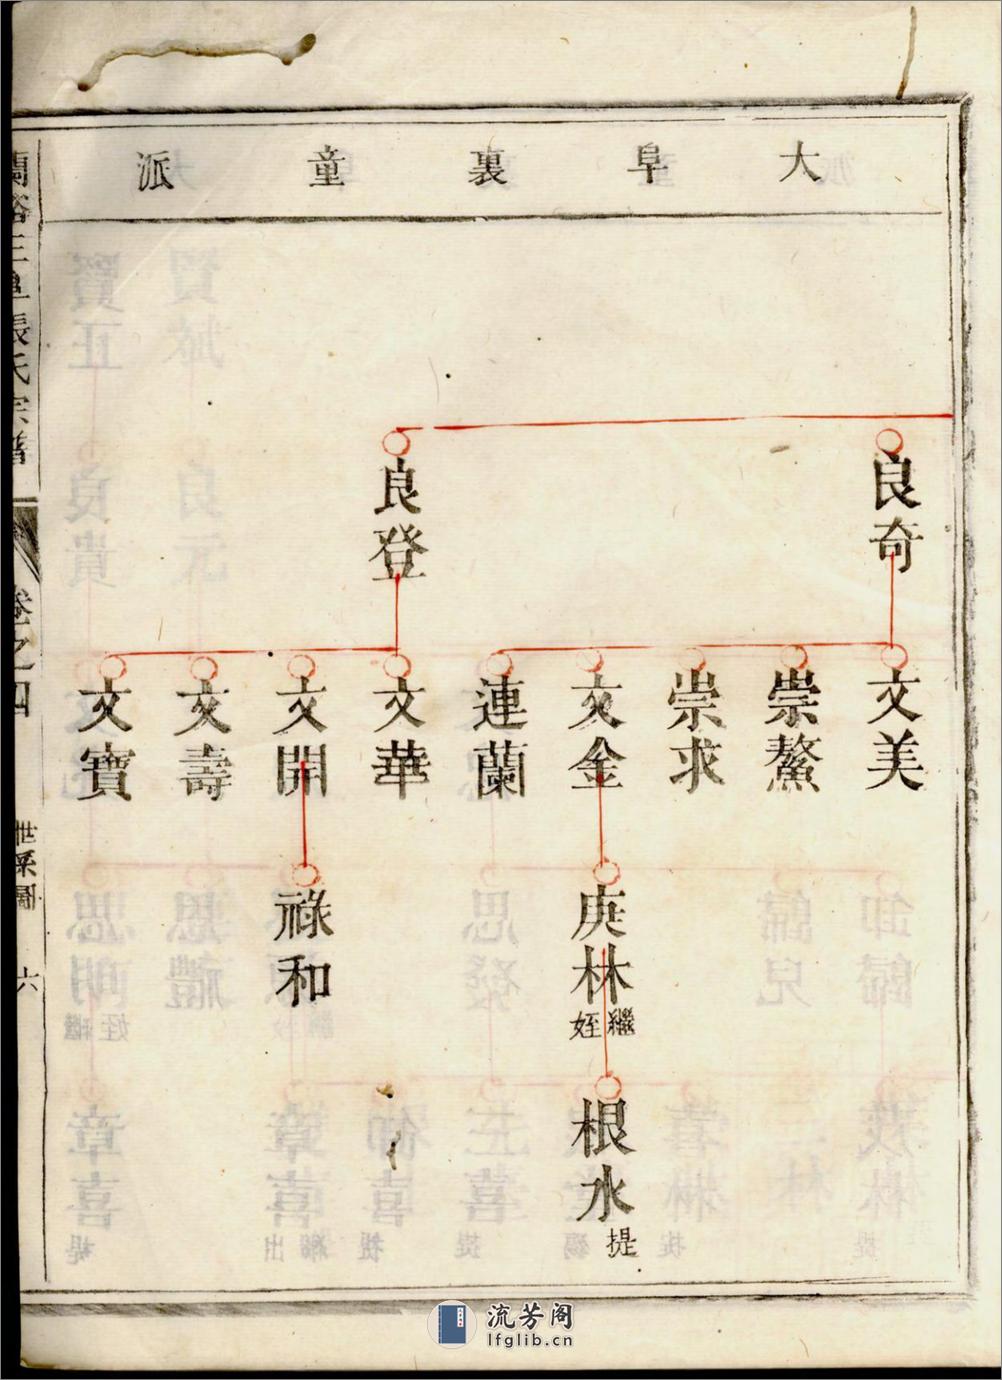 大阜裏童派
良奇
良登
文美
崇鰲
崇求
文金
連蘭
文華
文開
文壽
文寶
庚林
繼
姪
祿和
根水
提
張氏宗譜
卷之四
世系圖
六
流芳阁
lfglib.cn